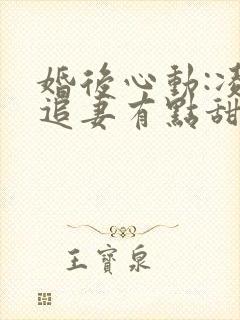 婚後心動:凌
追妻有點甜
王寶泉